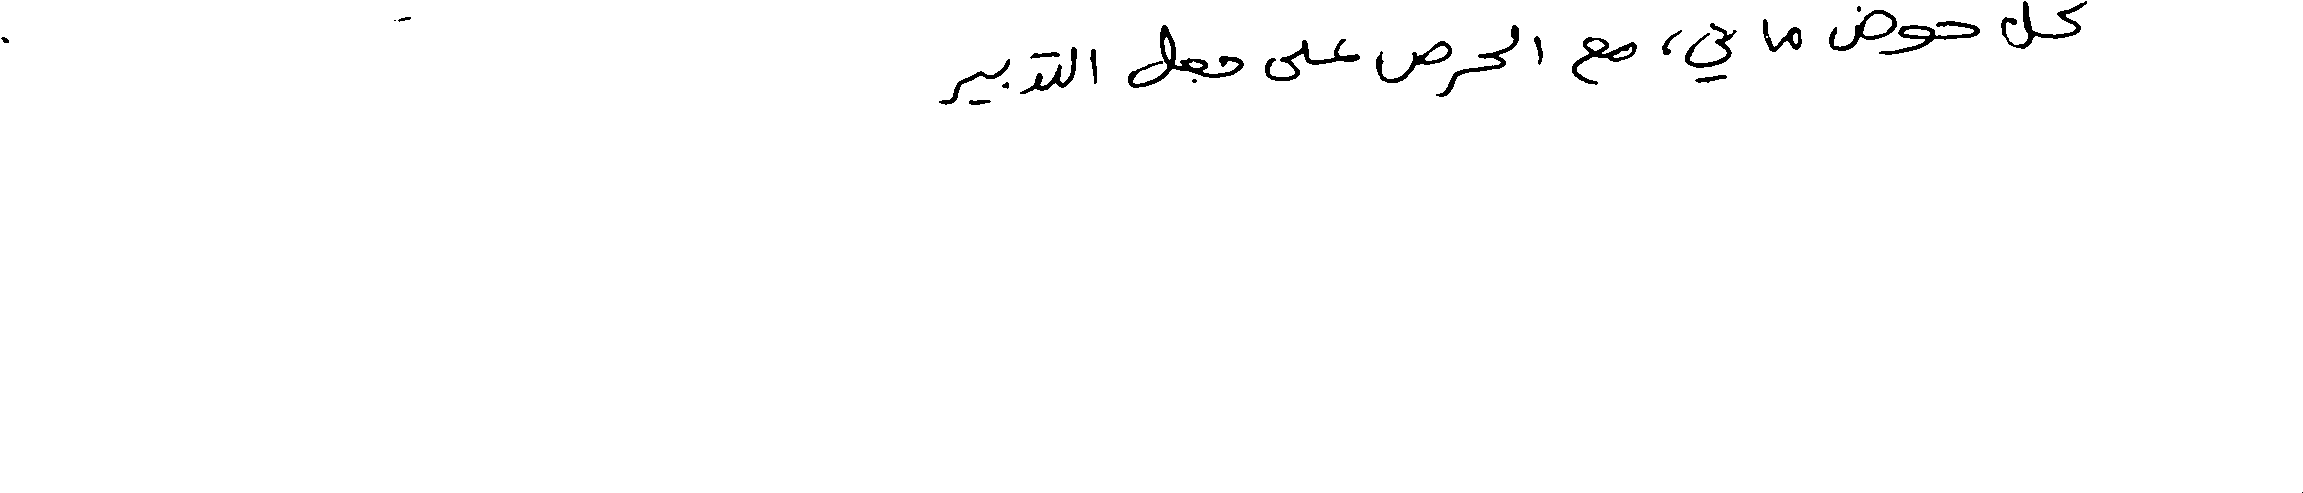 كل حوض مائي، مع الحرص على جعل التدبير